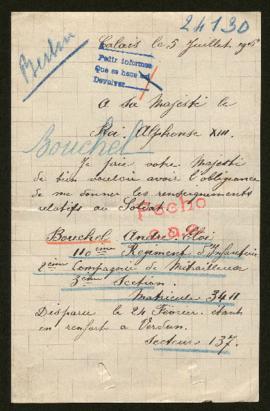 24130
Berlin
Calais le 5 Juillet 1916
Pedir informes
Que se hace
Devolver
A Sa Majesté le
Roi Alphonse XIII.
Bouchel
Je prie votre Majesté
de bien vouloir avoir l'obligeance
de me donner les renseignements
relatifs au Soldat
Fecho
Bouchel André Eloi
110ème Régiment d'Infanterie
2ème Compagnie de Mitrailleuse
3ème Section.
Matricule 3411
Disparu le 24 Février étant
en renfort à Verdun.
Secteur 137.